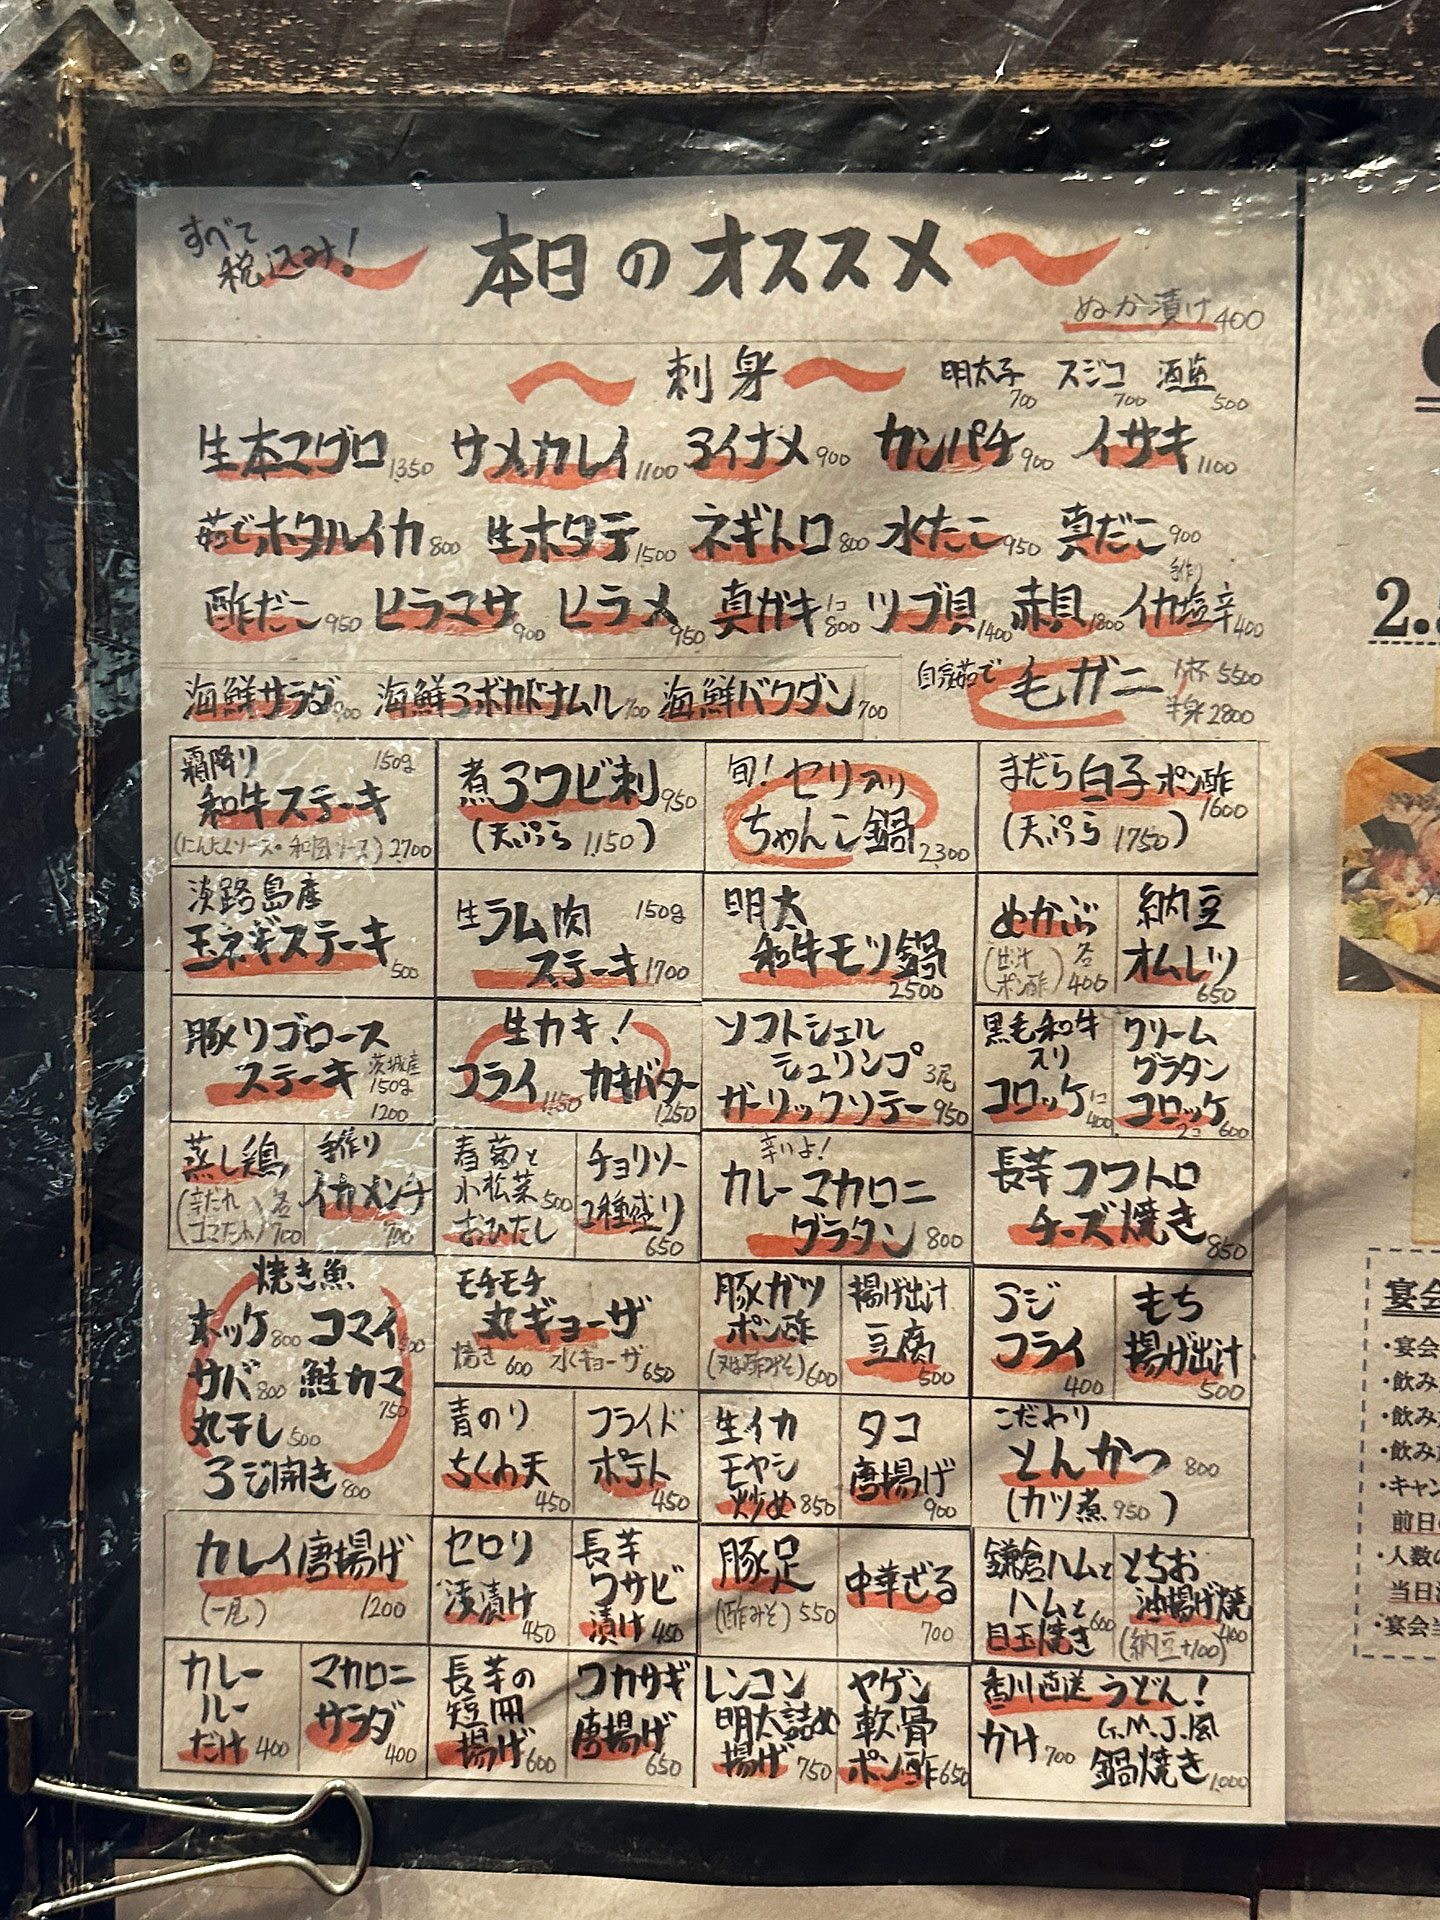 すべて
税込み!
本日のオススメ
ぬか漬け400
刺身
明太子700 スジコ700 酒盗500
生本マグロ1350 サメカレイ1100 アイナメ900 カンパチ900 イサキ1100
茹でホタルイカ800 生ホタテ1500 ネギトロ800 水たこ950 真だこ900
酢だこ950 ヒラマサ900 ヒラメ950 真ガキ1コ800 ツブ貝1400 赤貝1800 手作りイカ塩辛400
海鮮サラダ900 海鮮アボカドナムル700 海鮮バクダン700
自家茹で 毛ガニ 1杯5500
半身2800
霜降り 150g
和牛ステーキ
(にんにくソース・和風ソース)2700
煮アワビ刺950
(天ぷら1,150)
旬!セリ入り
ちゃんこ鍋2,300
まだら白子ポン酢1600
(天ぷら1750)
淡路島産
玉ネギステーキ500
生ラム肉 150g
ステーキ1700
明太
和牛モツ鍋
2500
めかぶ
(出汁 ポン酢)各400
納豆
オムレツ
650
豚リブロース
ステーキ 茨城産
150g
1200
生カキ!
フライ1150 カキバター1250
ソフトシェル
シュリンプ3尾
ガーリックソテー950
黒毛和牛
入り
コロッケ1コ400
クリーム
グラタン
コロッケ
2コ600
蒸し鶏
(辛だれ ゴマだれ)各700
手作り
イカメンチ
700
春菊と
小松菜500
おひたし
チョリソー
2種盛り
650
辛いよ!
カレーマカロニ
グラタン800
長芋フワトロ
チーズ焼き850
焼き魚
ホッケ800 コマイ500
サバ800 鮭カマ750
丸干し500
アジ開き800
モチモチ
丸ギョーザ
焼き600 水ギョーザ650
豚ガツ
ポン酢
(又は酢みそ)600
揚げ出汁
豆腐
500
アジ
フライ
400
もち
揚げ出汁
500
青のり
ちくわ天
450
フライド
ポテト
450
生イカ
モヤシ
炒め850
タコ
唐揚げ
900
こだわり
とんかつ800
(カツ煮950)
カレイ唐揚げ
(一尾)1200
セロリ
浅漬け
450
長芋
ワサビ
漬け450
豚足
(酢みそ)550
中華ざる
700
鎌倉ハムと
ハムと
目玉焼き600
とちお
油揚げ焼400
(納豆+100)
カレー
ルー
だけ400
マカロニ
サラダ
400
長芋の
短冊
揚げ600
ワカサギ
唐揚げ
650
レンコン
明太詰め
揚げ750
ヤゲン
軟骨
ポン酢650
香川直送うどん!
かけ700
G.M.J.風
鍋焼き1,000
2.
宴会
・宴会
・飲み
・飲み
・飲み
・キャン
前日
・人数の
当日
・宴会